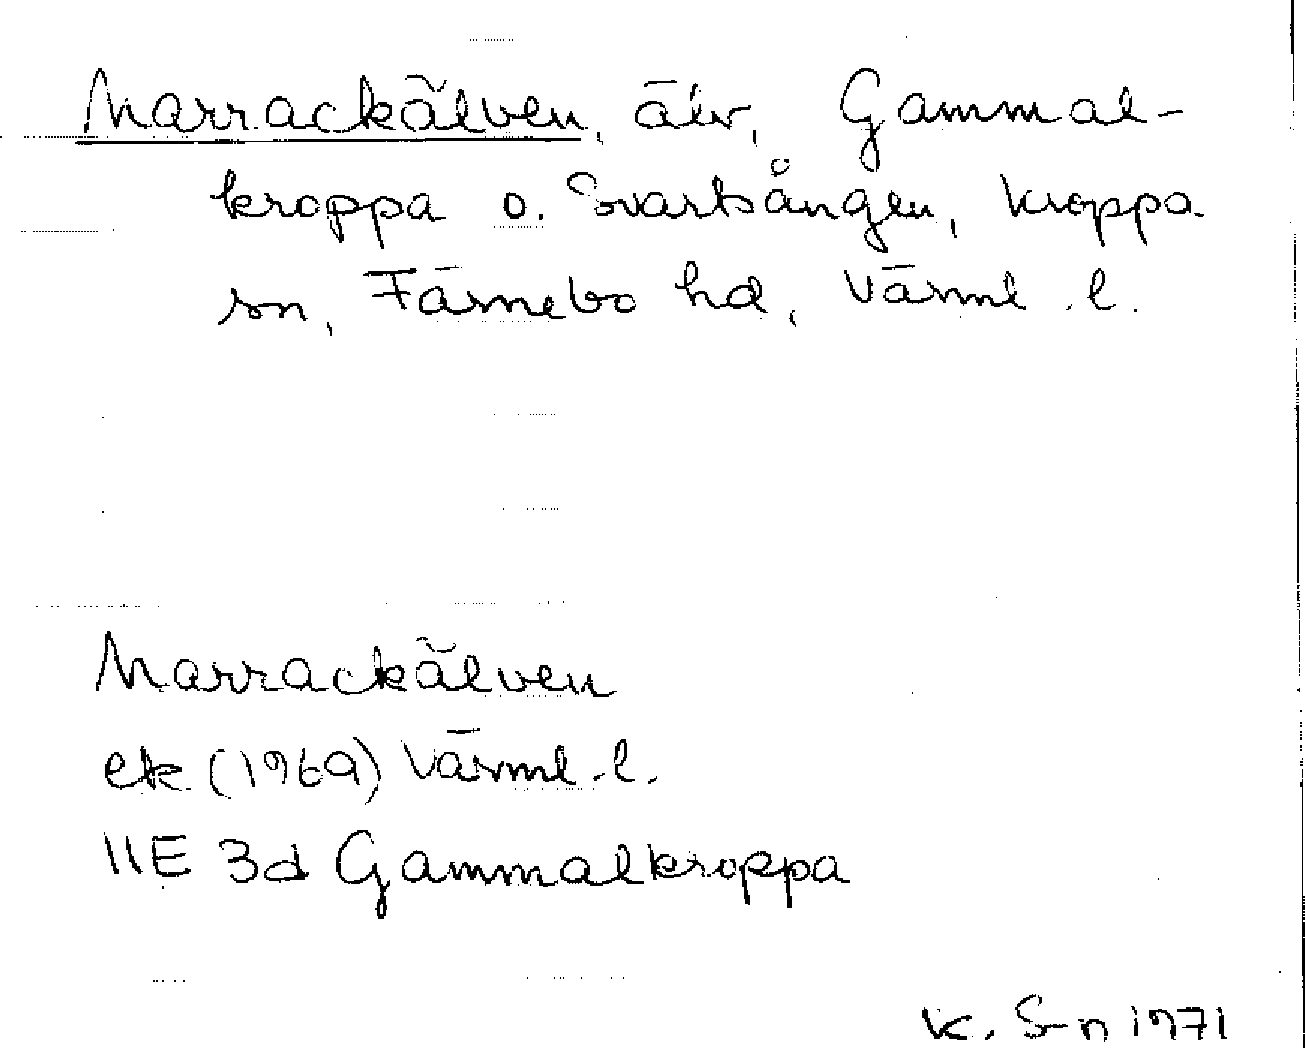 Marrackälven, älv, Gammal-
kroppa o. Svartsången, Kroppa
sn, Färnebo hd, Värml. l.
Marrackälven
ek (1969) Värml. l.
11E 3d Gammalkroppa
K. S-n 1971